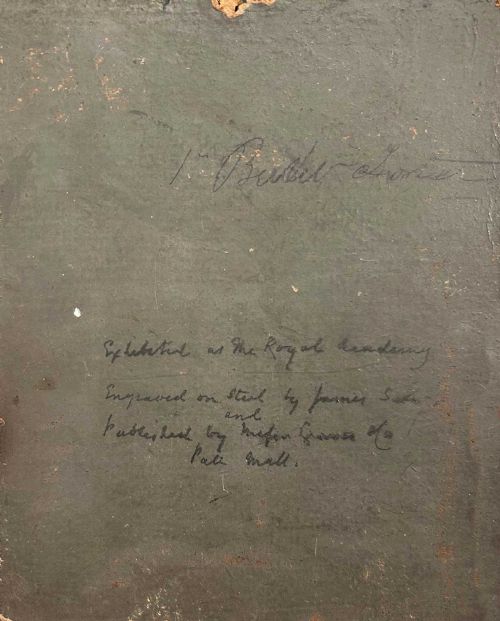 Exhibited at the Royal Academy
Engraved on Steel by James
and
Published by Messrs Graves & Co
Pall Mall.